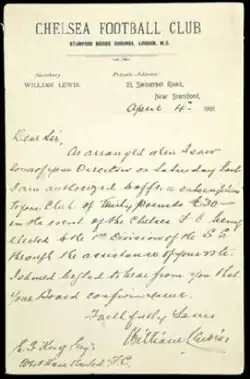 CHELSEA FOOTBALL CLUB
Secretary
WILLIAM LEWIS.
Private Address
April 4th
Dear Sir,
As arranged when I saw
some of your Directors on Saturday last
I am to offer a subscription
to your Club of Thirty Pounds £30—
in the event of the Chelsea F C being
elected to the 1st Division of the
through the assistance of your vote.
I should be glad to hear from you that
your Board
Faithfully Yours
William Lewis
King
West Ham United F.C.